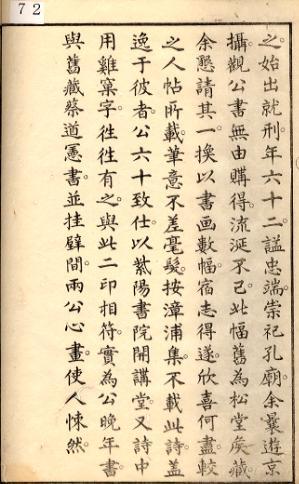 72
之。始出就刑。年六十二。諡忠端。崇祀孔廟。余曩遊京
攝。觀公書。無由購得。流涎不已。此幅舊為松堂矦藏。
余懇請其一換以書画數幅。宿志得遂。欣喜何盡。較
之人帖所載。筆意不差毫髮。按漳浦集不載此詩。蓋
逸于彼者。公六十致仕。以紫陽書院開講堂。又詩中
用雞窠字。徃徃有之。與此二印相符。實為公晚年書。
與舊藏蔡道憲書並挂壁間。兩公心畫。使人悚然。